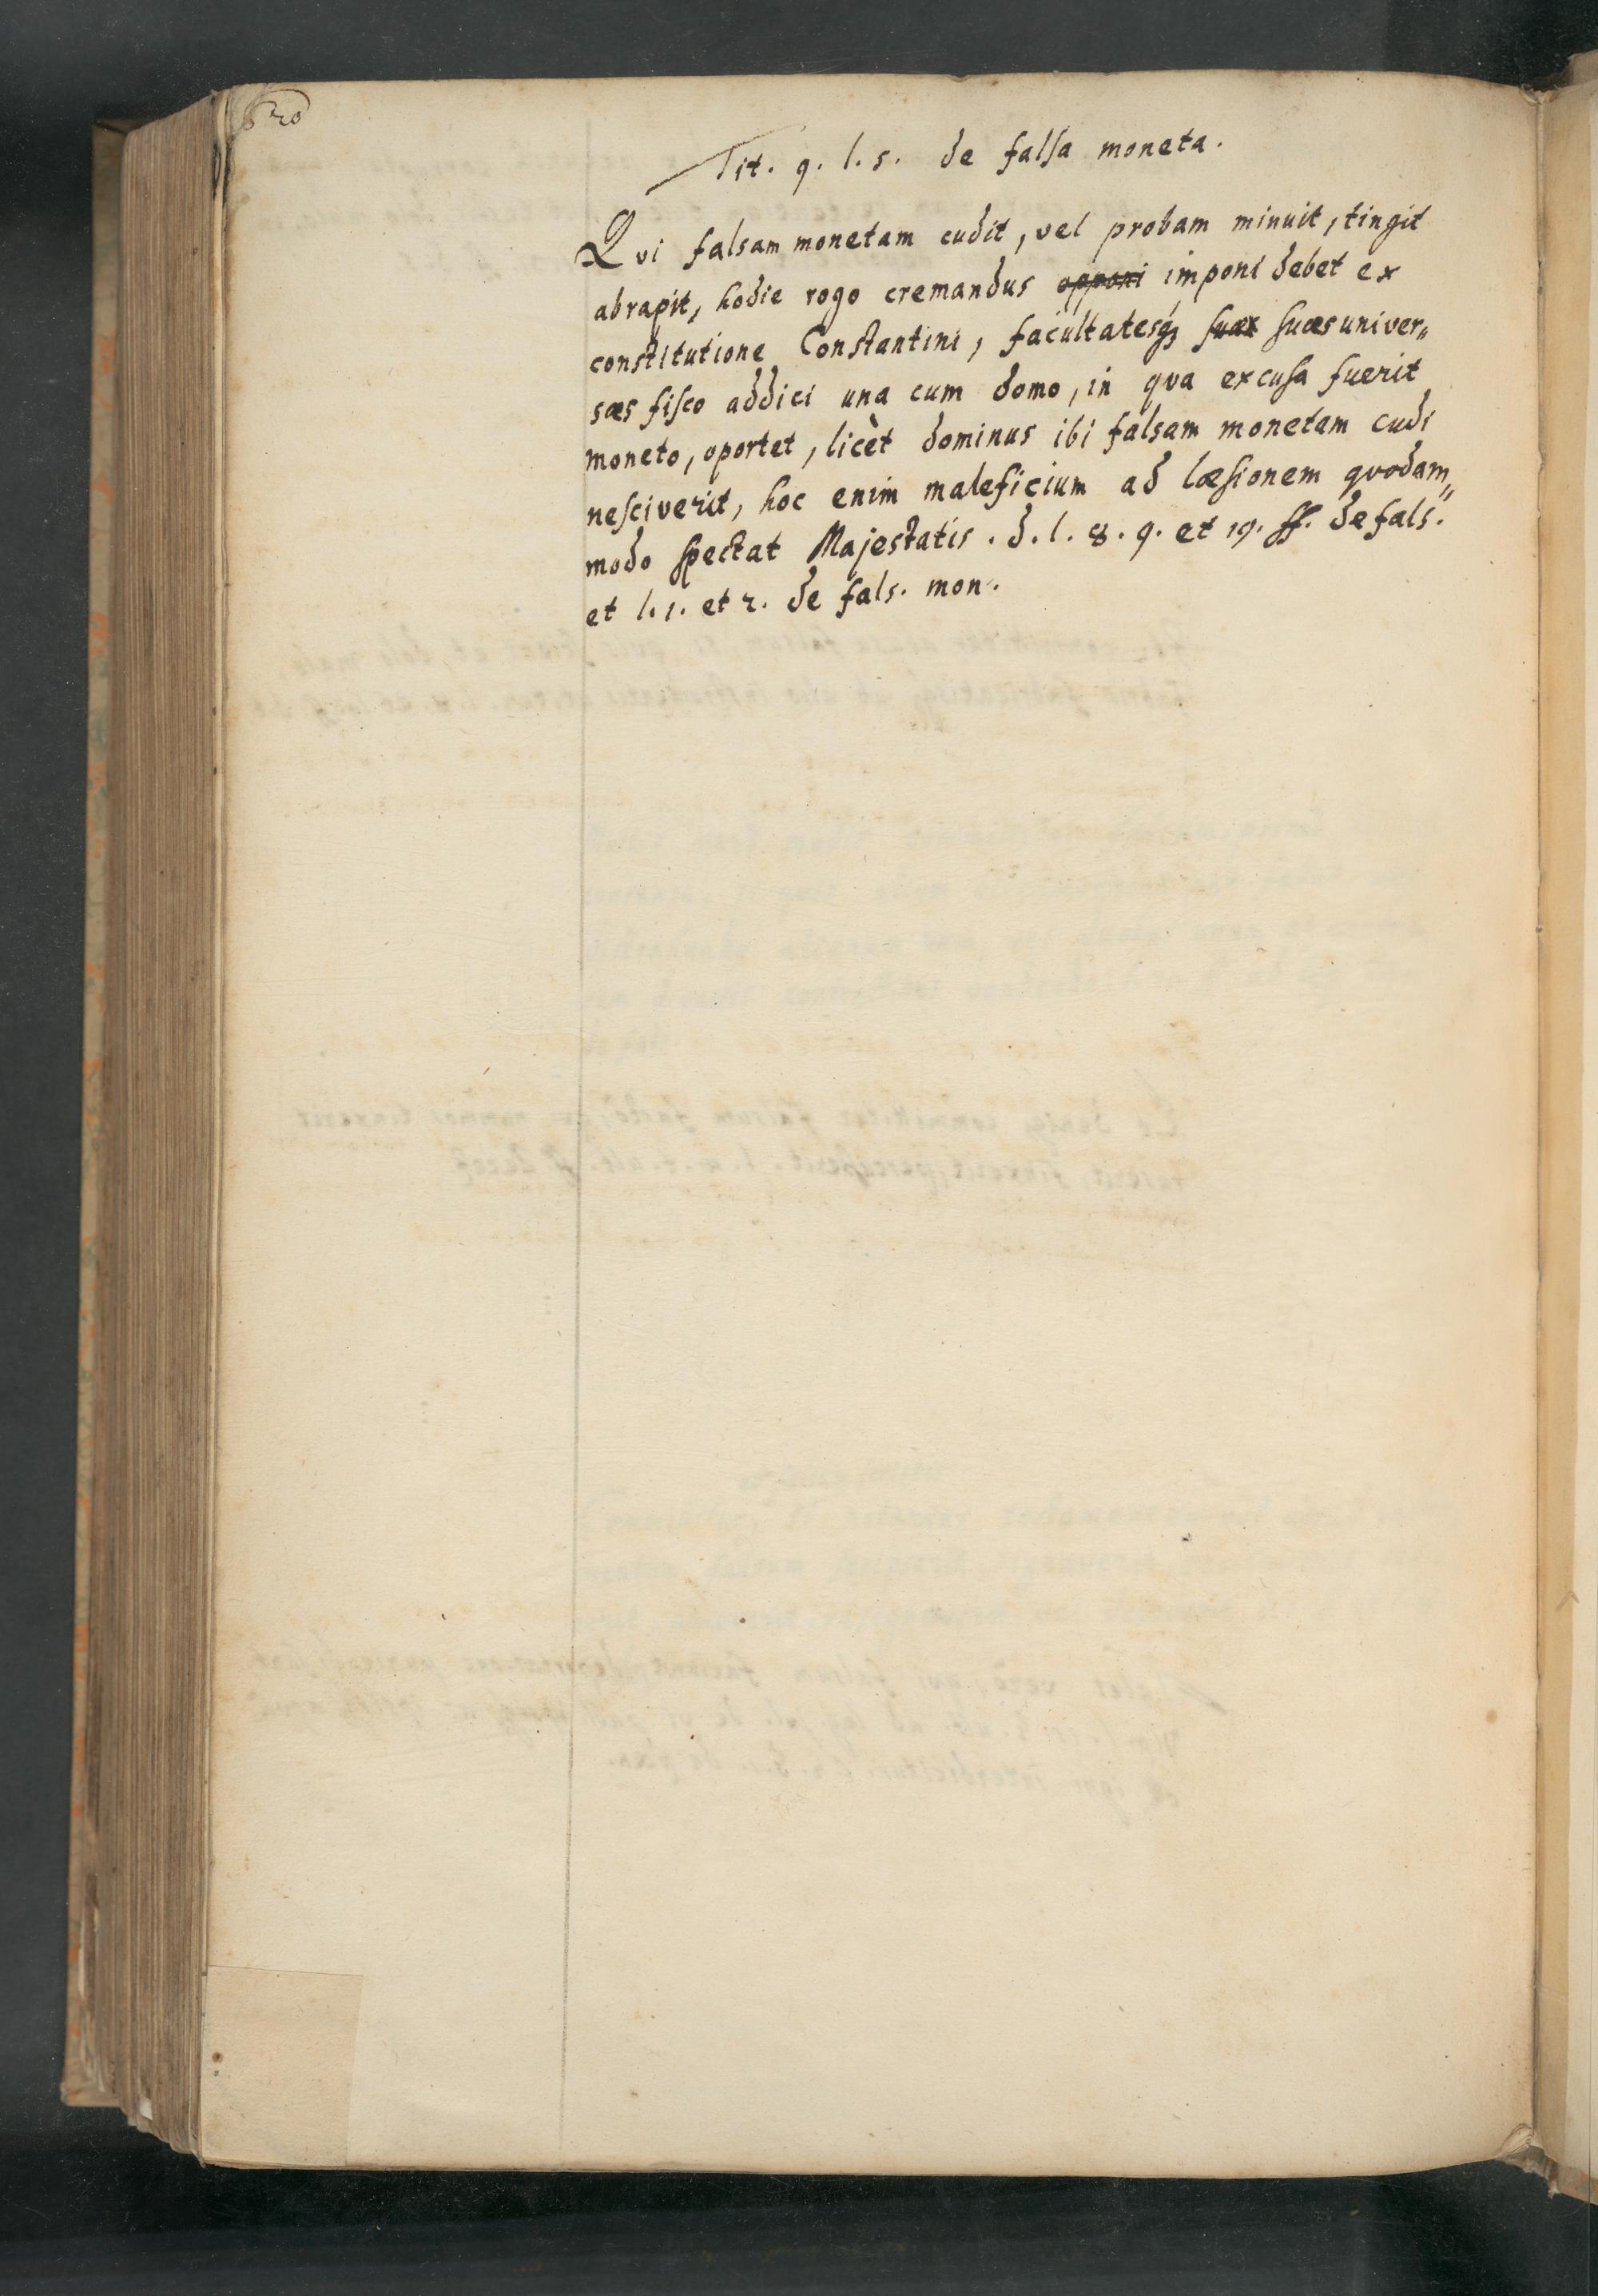 620
Tit. 9. l. s. de falsa moneta.
Qvi falsam monetam cudit, vel probam minuit, tingit
abrapit, hodie rogo cremandus opponi imponi debet ex
constitutione Constantini, facultatesq; suas suas univer„
sas fisco addici una cum domo, in qva excusa fuerit
moneto, oportet, licèt dominus ibi falsam monetam cudi
nesciverit, hoc enim maleficium ad læsionem qvodam„
modo spectat Majestatis. d. l. 8. 9. et 19. ff. de fals.
et l. 1. et 2. de fals. mon.